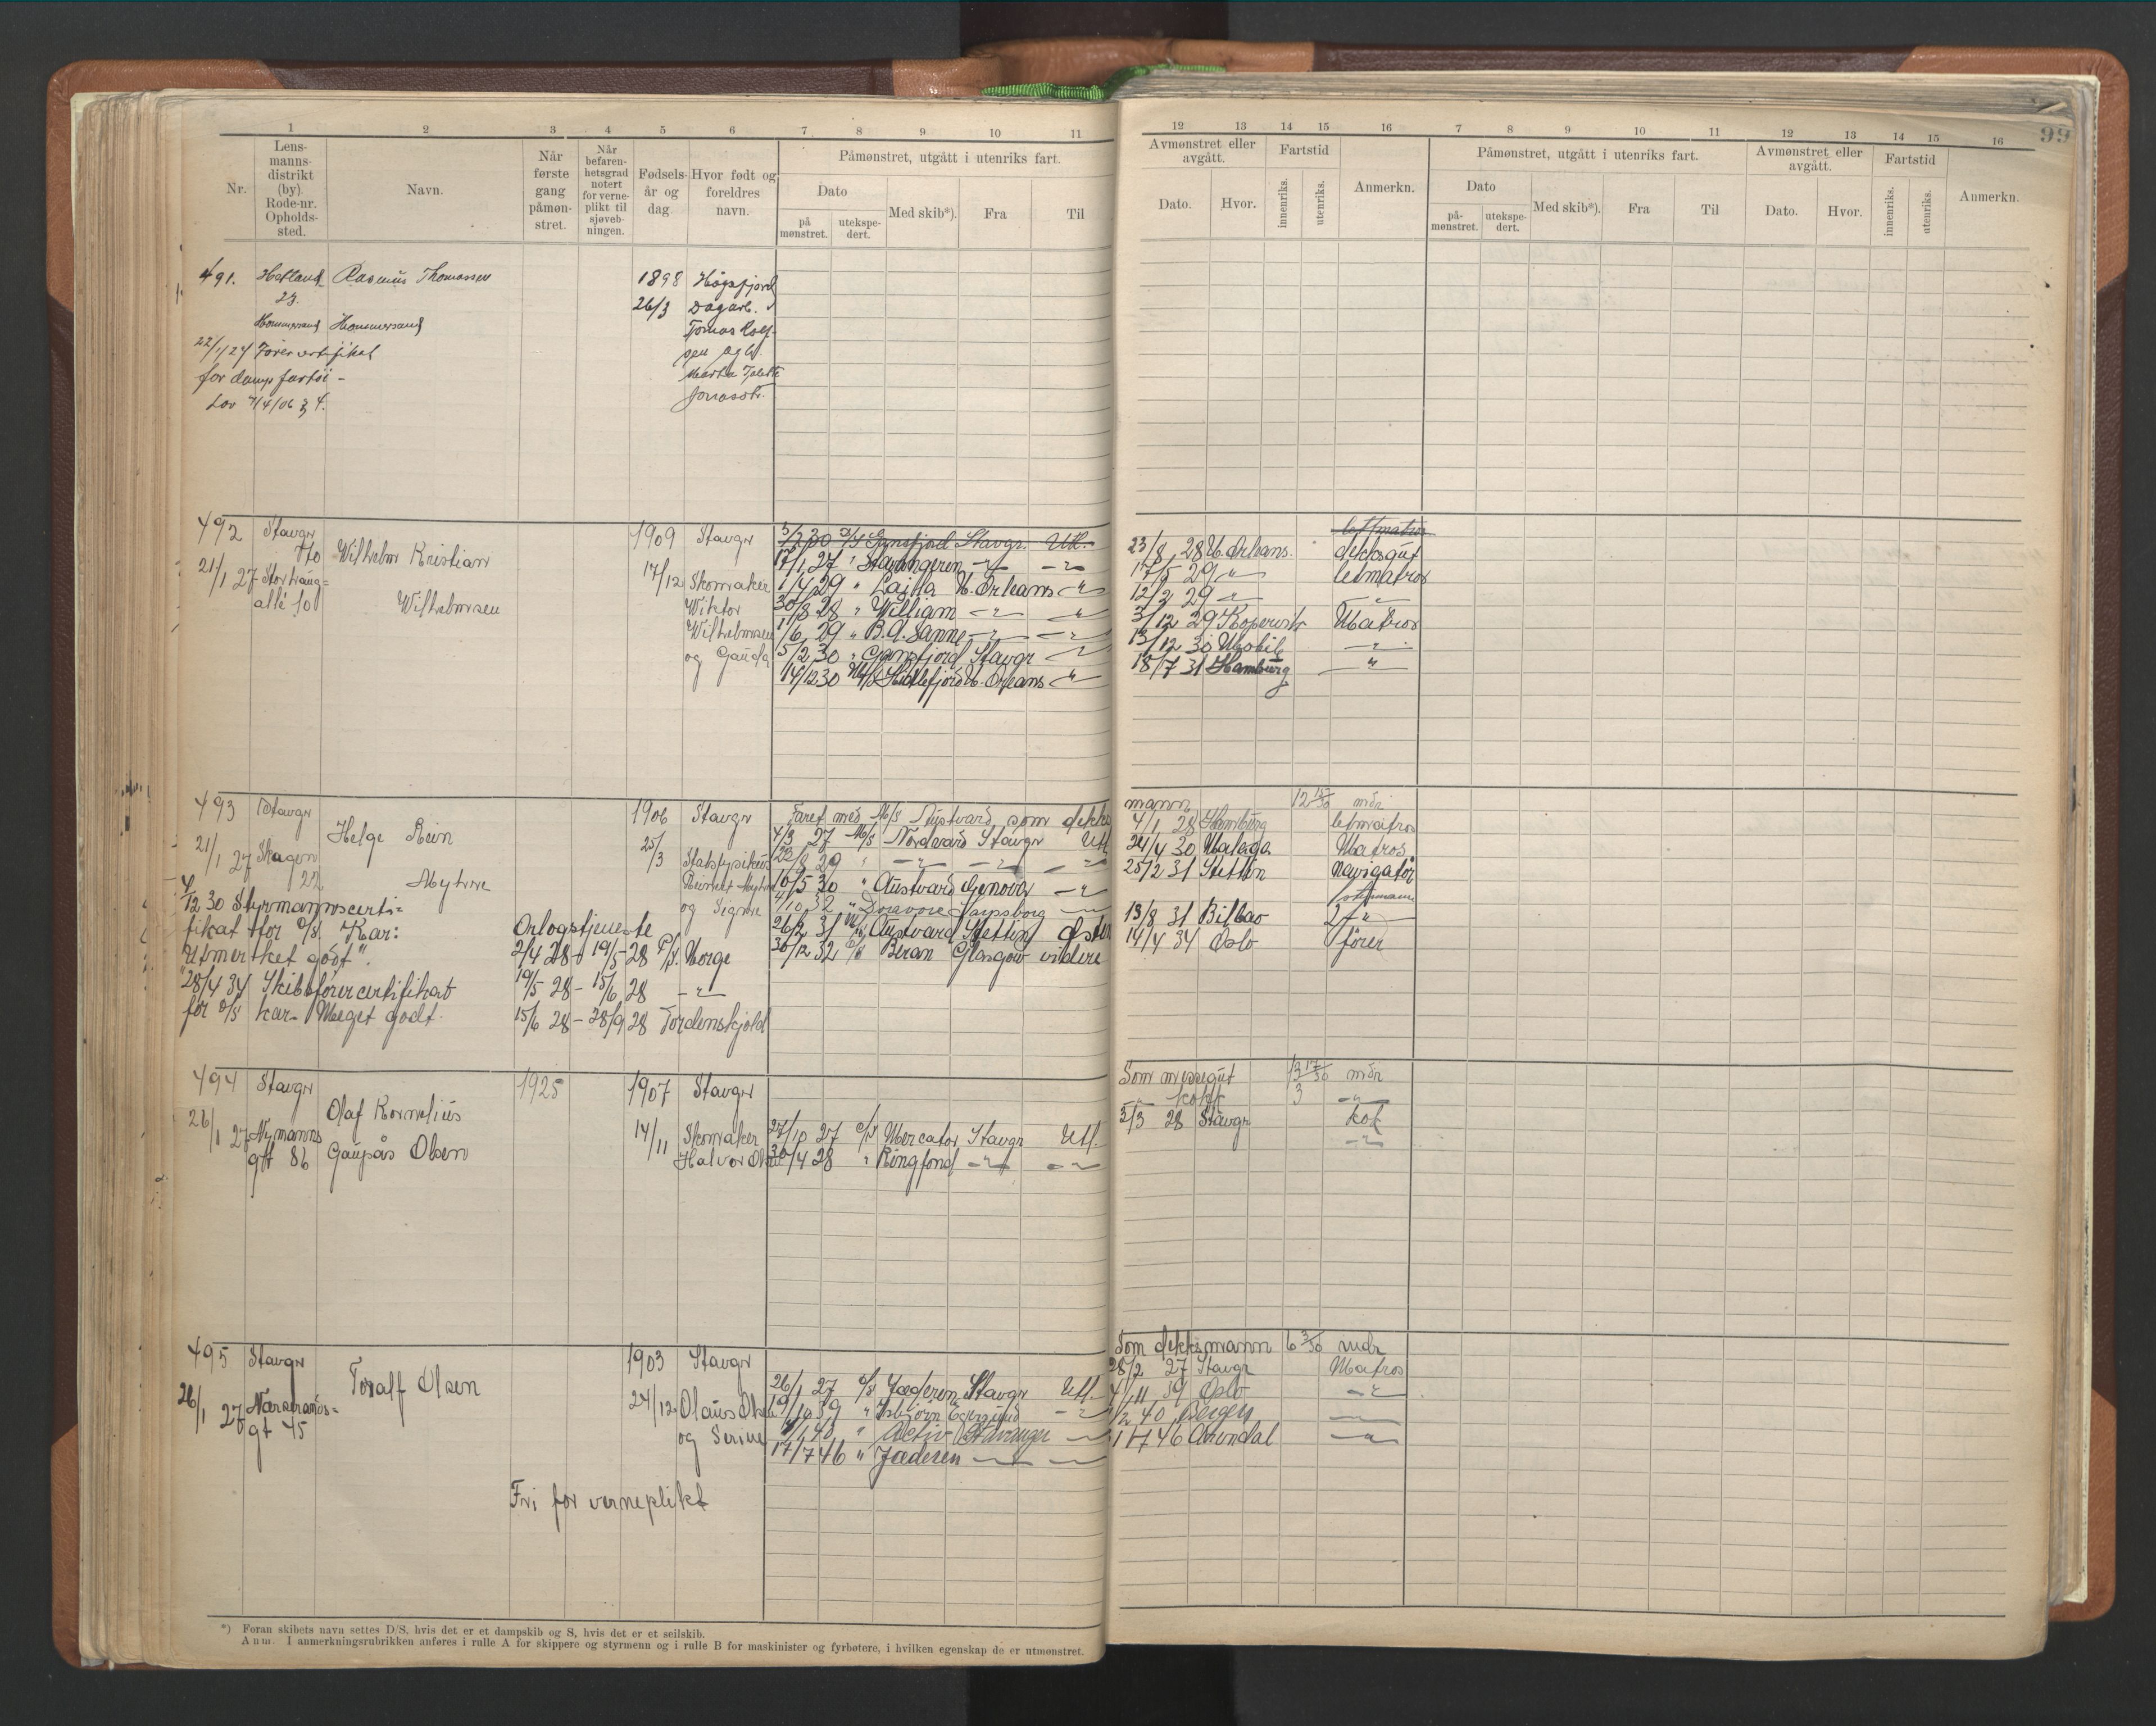 99
1 2 3 4 5 6 7 8 9 10 11
Nr.
Lens-
manns-
distrikt
(by).
Rode-nr.
Opholds-
sted.
Navn.
Når
første
gang
påmøn-
stret.
Når
befaren-
hetsgrad
notert
for verne-
plikt til
sjøveb-
ningen.
Fødsels-
år og
dag
Hvor født og
foreldres
navn.
Påmønstret, utgått i utenriks fart.
Dato
på
mønstret.
utekspe-
dert.
Med skib*).
Fra
Til
12 13 14 15 16 7 8 9 10 11 12 13 14 15 16
Avmønstret eller
avgått.
Dato.
Hvor.
Fartstid
innenriks.
utenriks.
Anmerkn.
Påmønstret, utgått i utenriks fart.
Dato
på-
mønstret.
utekspe-
dert.
Med skib*).
Fra
Til
Avmønstret eller
avgått.
Dato.
Hvor.
Fartstid
innenriks.
utenriks.
Anmerkn.
491. Hetland Rasmus Thomassen 1898 Høgsfjord
23. 26/3 Dagarb.
Hommersand Hommersand Tomas
22/1/27 Förercertifikat
for dampfartøi - Marta
Lov 7/4/06 § 4.
492 Stavgr 1909 Stavgr 5/2 30 D/S Gansfjord Stavgr. Utl. letmatros
Wilhelm Kristian 17/1 27 " Stavangeren -"- -"- 23/8 28 N. Orleans. dekksgut
21/1 27 Storhaug= 17/12 Skomaker 1/4 29 " Lajla N. Orleans -"- 17/5 29 -"- letmatros
allé 50 Wilhelmsen Wiktor 30/8 28 " William -"- -"- 12/2 29 -"- -"-
Wilhelmsen 1/6 29 " B.A. Sanne -"- -"- 3/12 29 Kopervik Matros
og Gauda 5/2 30 " Gansfjord Stavgr -"- 13/12 30 Mobile -"-
14/12 30 M/S Hidlefjord N. Orleans -"- 18/7 31 Hamburg -"-
493 Stavgr 1906 Stavgr Faret med M/S Nystvard som dekks mann 12 17/30 mdr
Helge Rein 25/3 4/3 27 M/S Nordvard Stavgr Utl 4/1 28 Hamburg letmatros
21/1 27 Skagen 22 Statsfysikus 22/8 29 " -"- -"- -"- 24/4 30 Malaga Matros
Myhre Reinert Myhre 10/5 30 " Austvard Genova -"- 25/2 31 Stettin navigatør
4/12 30 Styrmannscerti= og Signe 4/10 32 " Doravore Sarpsborg -"- styrmann
fikat for D/S. Kar: Orlogstjeneste 26/2 31 M/S Austvard Stettin Østen 13/8 31 Bilbao 2 -"-
Utmerket godt". 2/4 28 - 19/5-28 P/S. Norge 30/12 32 D/S Beran Glasgow videre 14/4 34 Oslo fører
"28/4 34 Skibsförercertifikat 19/5 28 - 15/6 28 -"-
for D/S kar- Meget godt. 15/6 28 - 28/9 28 Tordenskjold
494 Stavgr 1925 1907 Stavgr Som messegut 13 17/30 mdr
Olaf Kornelius -"- kokk 3 -"-
26/1 27 Nymanns 14/11 Skomaker 27/10 27 D/S Mercator Stavgr Utl. 2/3 28 Stavgr kok
gt 86 Gaupås Olsen Halvor Olsen 30/4 28 " Ringfond -"- -"- -"-
495 Stavgr 1903 Stavgr Som dekksmann 6 3/30 mdr
Toralf Olsen 26/1 27 D/S Jæderen Stavgr Utl. 28/2 27 Stavgr Matros
26/1 27 Nærstrands= 24/12 Olaus Olsen 19/10 39 " Isbjørn Egersund -"- 4/11 39 Oslo -"-
gt 45 og Serine 4/1 40 " Activ Stavanger -"- 1/2 40 Bergen -"-
17/7 46 " Jæderen -"- -"- Arendal -"-
Fri for verneplikt
*) Foran skibets navn settes D/S, hvis det er et dampskib og S, hvis det er et seilskib.
Anm. I anmerkningsrubrikken anføres i rulle A for skippere og styrmenn og i rulle B for maskinister og fyrbøtere, i hvilken egenskap de er utmønstret.